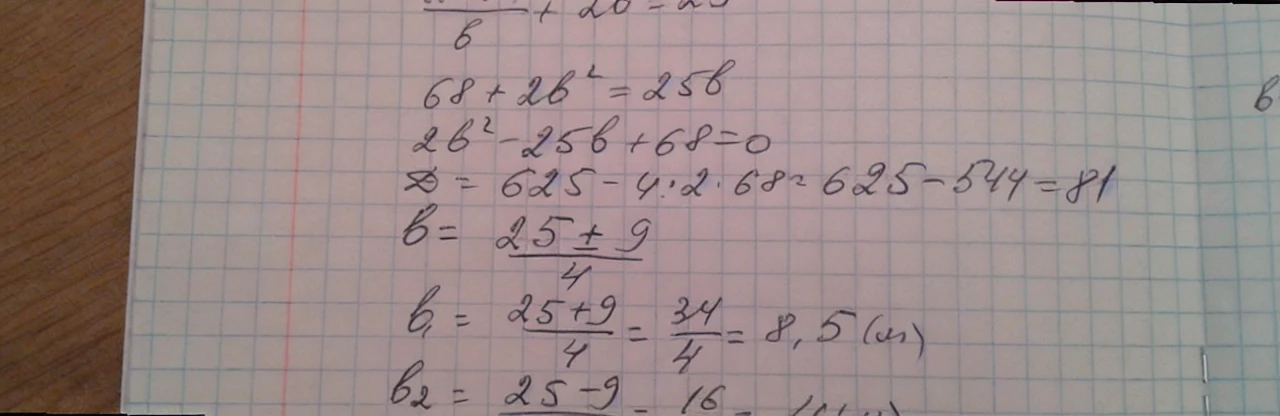 b + 2b = 25
68 + 2b² = 25b
2b² - 25b + 68 = 0
D = 625 - 4·2·68 = 625 - 544 = 81
b = (25 ± 9)/4
b₁ = (25+9)/4 = 34/4 = 8,5 (м)
b₂ = 25-9 = 16 =
b